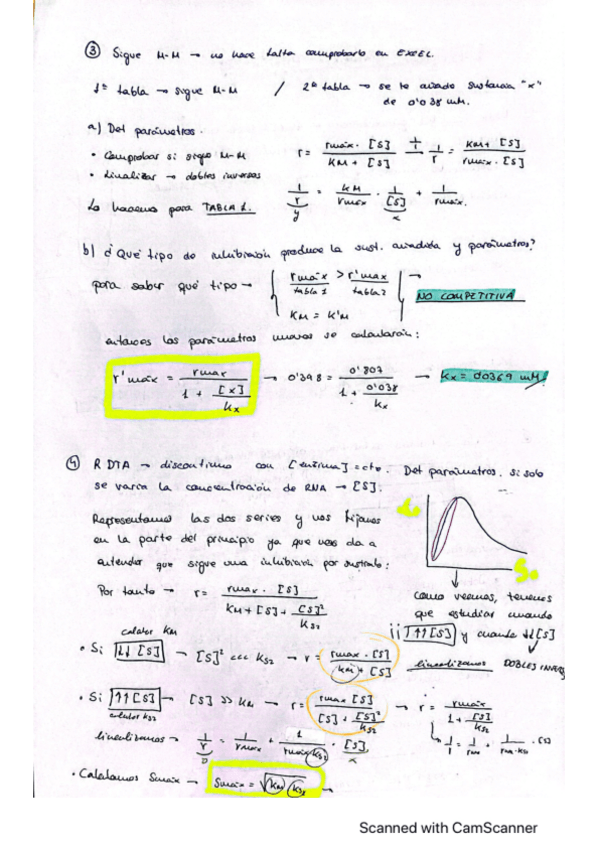 ③ Sigue M-M → no hace falta comprobarlo en EXCEL.
1ª tabla → sigue M-M / 2ª tabla → se te añade sustancia "x"
de 0'038 mM.
a) Det parámetros.
• Comprobar si sigue M-M
r = rmáx · [S] / KM + [S] → 1/r = KM + [S] / rmáx · [S]
• Linealizar → dobles inversos
1/r = KM/rmáx · 1/[S] + 1/rmáx.
y x
Lo hacemos para TABLA 1.
b) ¿Qué tipo de inhibición produce la sust. añadida y parámetros?
para saber qué tipo → { rmáx > r'max →
tabla 1 tabla 2
KM = K'M
NO COMPETITIVA
entonces los parámetros nuevos se calcularán:
r'máx = rmax / 1 + [x]/kx → 0'398 = 0'803 / 1 + 0'038/kx → kx = 0'0369 mM
④ R DTA → discontinuo con [enzima] = cte. Det parámetros. Si solo
se varía la concentración de RNA → [S].
Representamos las dos series y nos fijamos
en la parte del principio ya que nos da a
entender que sigue una inhibición por sustrato:
Por tanto → r = rmax · [S] / KM + [S] + [S]²/KS2
Como vemos, tenemos
que estudiar cuando
¡¡ ↑↑[S] y cuando ↓↓[S]
calcular KM
• Si ↓↓ [S] → [S]² <<< KS2 → r = rmax · [S] / KM + [S] linealizamos DOBLES INVERS
• Si ↑↑ [S] → [S] >> KM → r = rmax [S] / [S] + [S]²/KS2 → r = rmáx / 1 + [S]/KS2
calcular KS2
linealizamos → 1/r = 1/rmax + 1/rmax KS2 · [S]
y x
1/r = 1/rmax + 1/rmax·KS2 · [S]
• Calculamos Smáx → Smáx = √KM KS2 →
Scanned with CamScanner